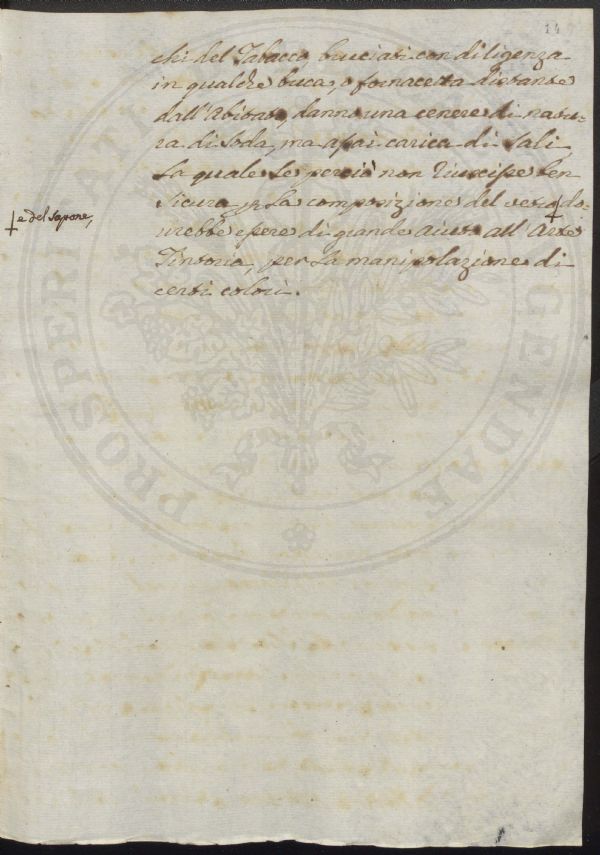 14
chi del Tabacco bruciati con diligenza
in qualche buca, o fornacetta distante
dall'Abitato, danno una cenere di natu-
ra di Soda, ma assai carica di Sali,
La quale se perciò non riuscisse ben
sicura p. La composizione del vetro † do-
† e del sapone,
urebbe essere di grande aiuto all'Arte
Tintoria, per La manipolazione di
certi colori.
PROSPERITATI AUGENDAE